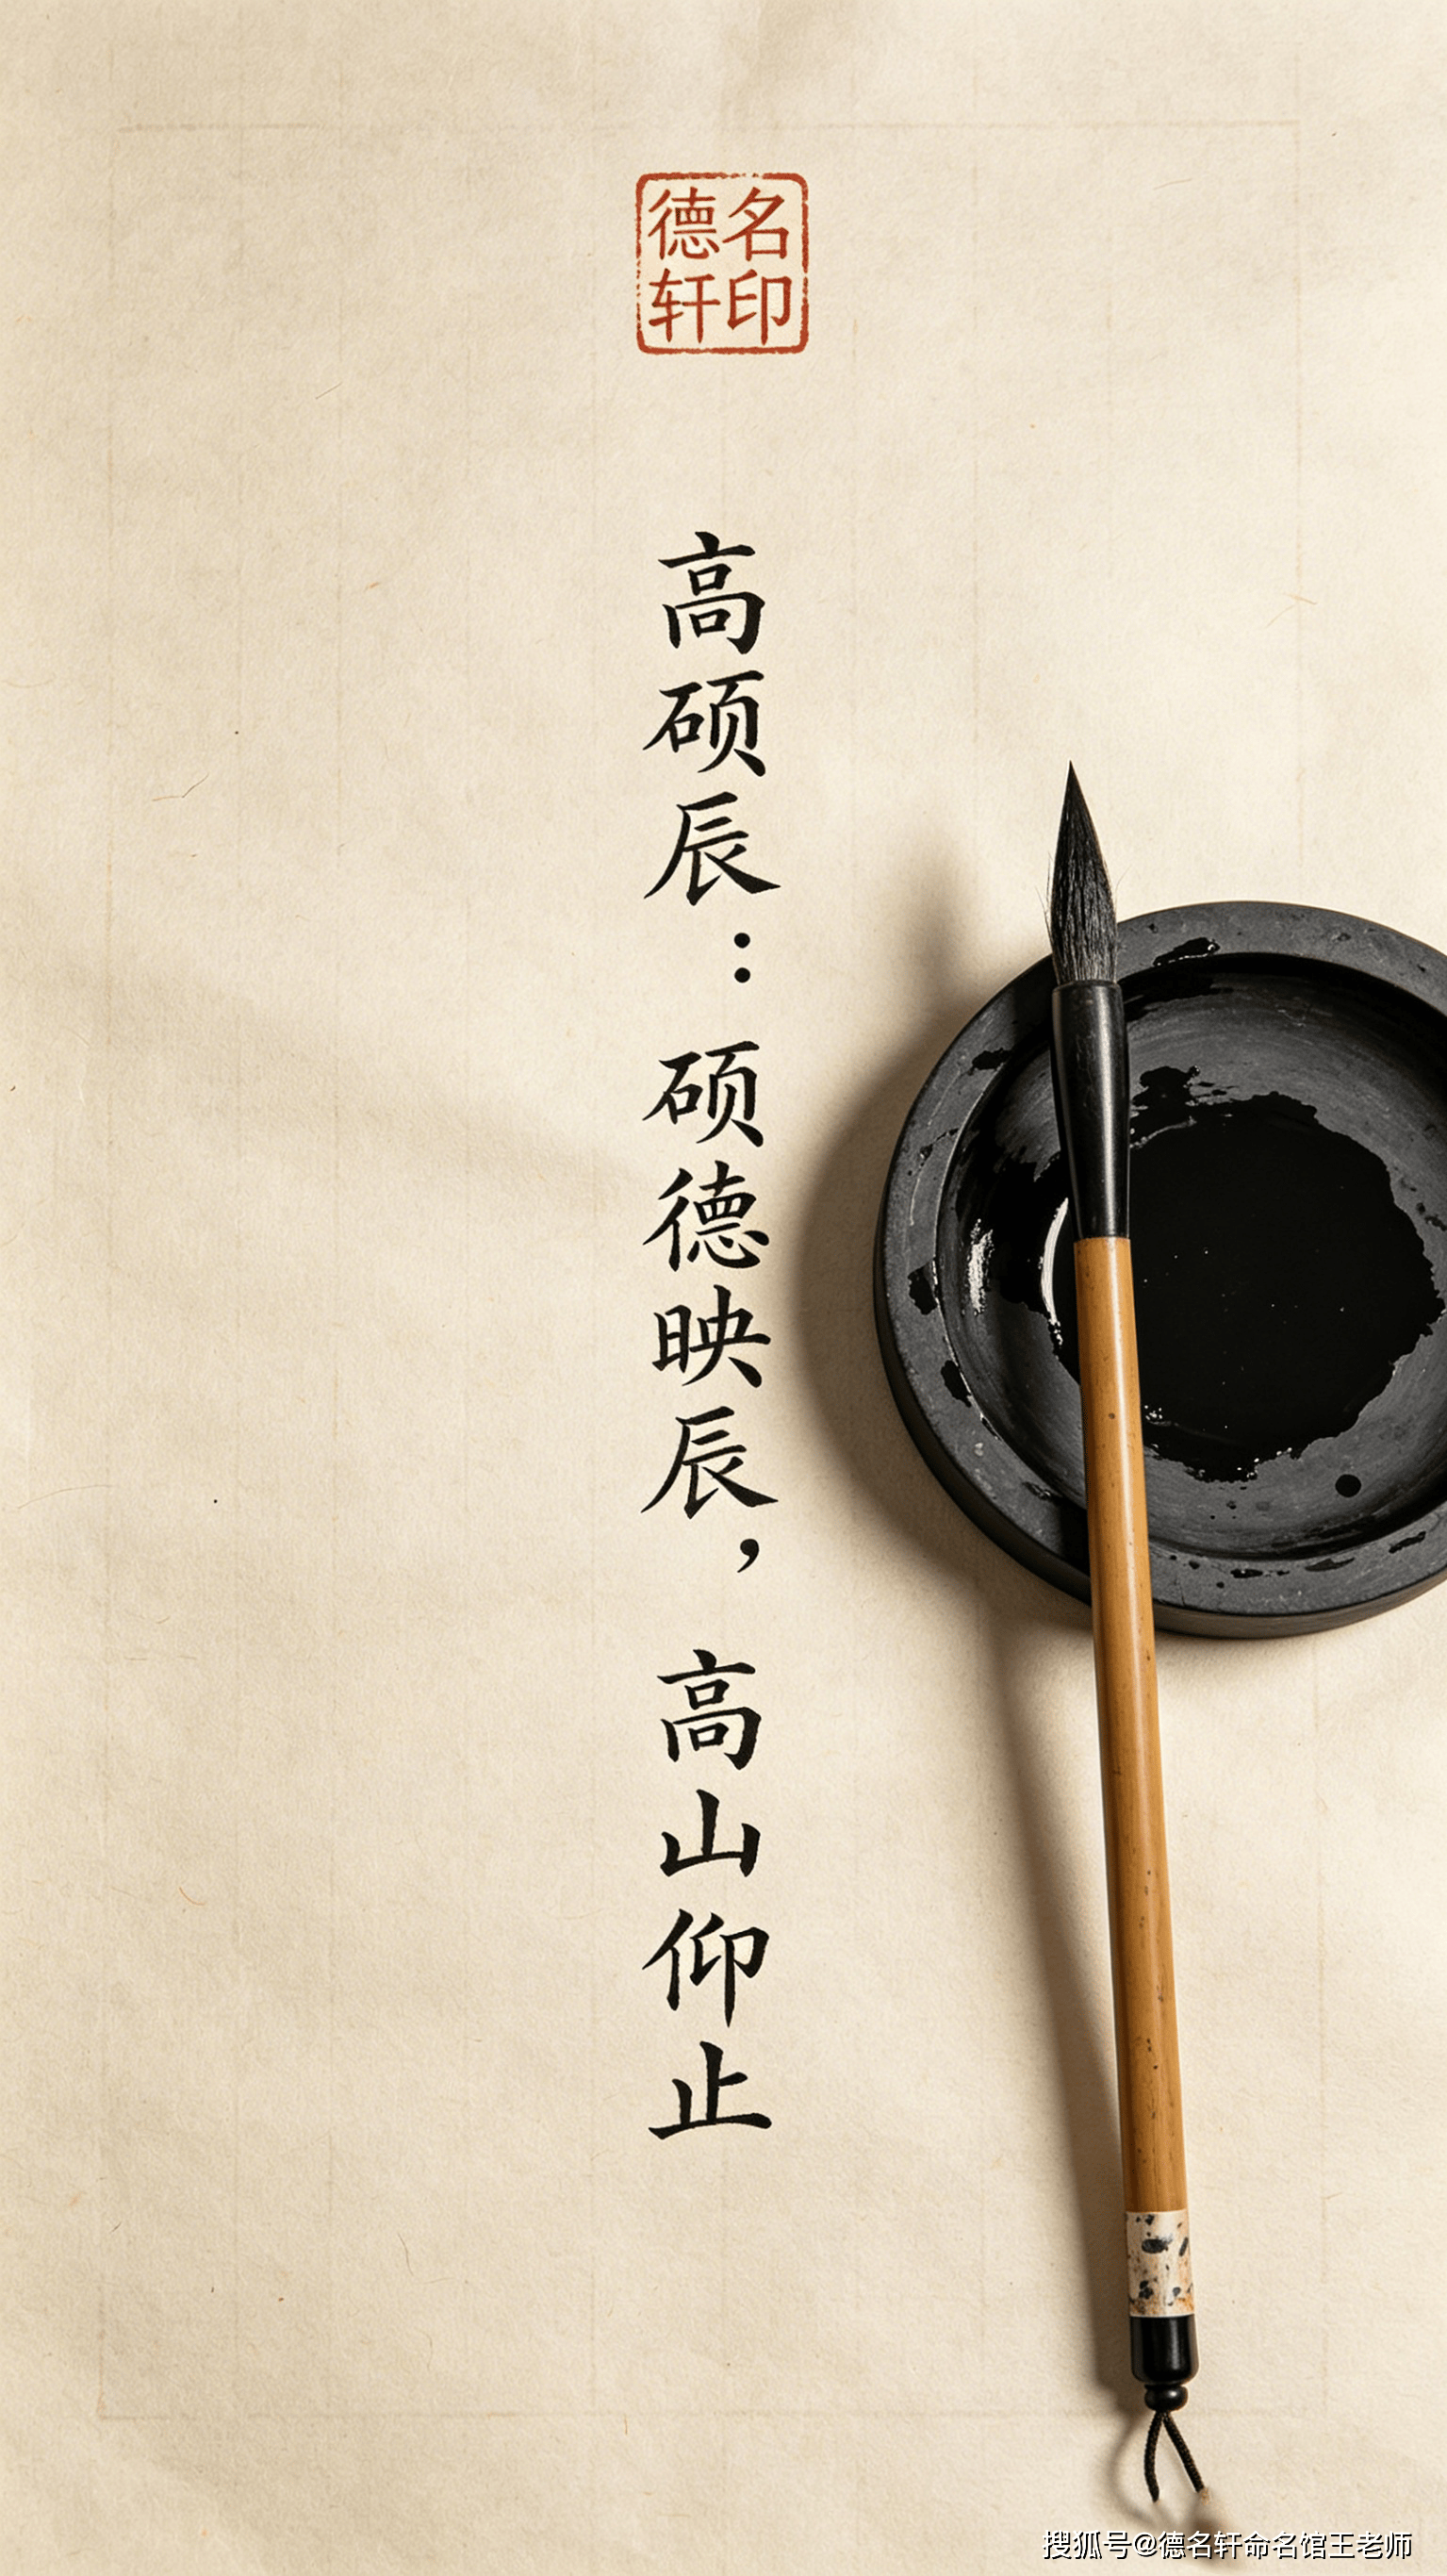 德名
轩印
高硕辰：硕德映辰，高山仰止
搜狐号@德名轩命名馆王老师